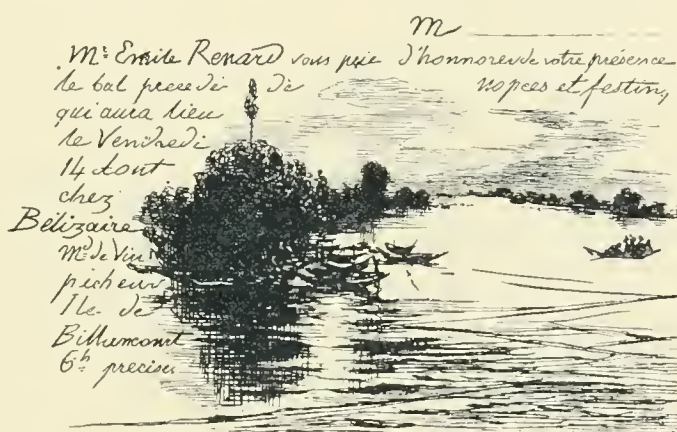 M
Mr Emile Renard vous prie d'honnorer de votre présence
le bal precede de nopces et festins
qui aura lieu
le Vendredi
14 Aout
chez
Bélizaire
Md de Vin
pêcheur
Ile de
Billancourt
6h precises